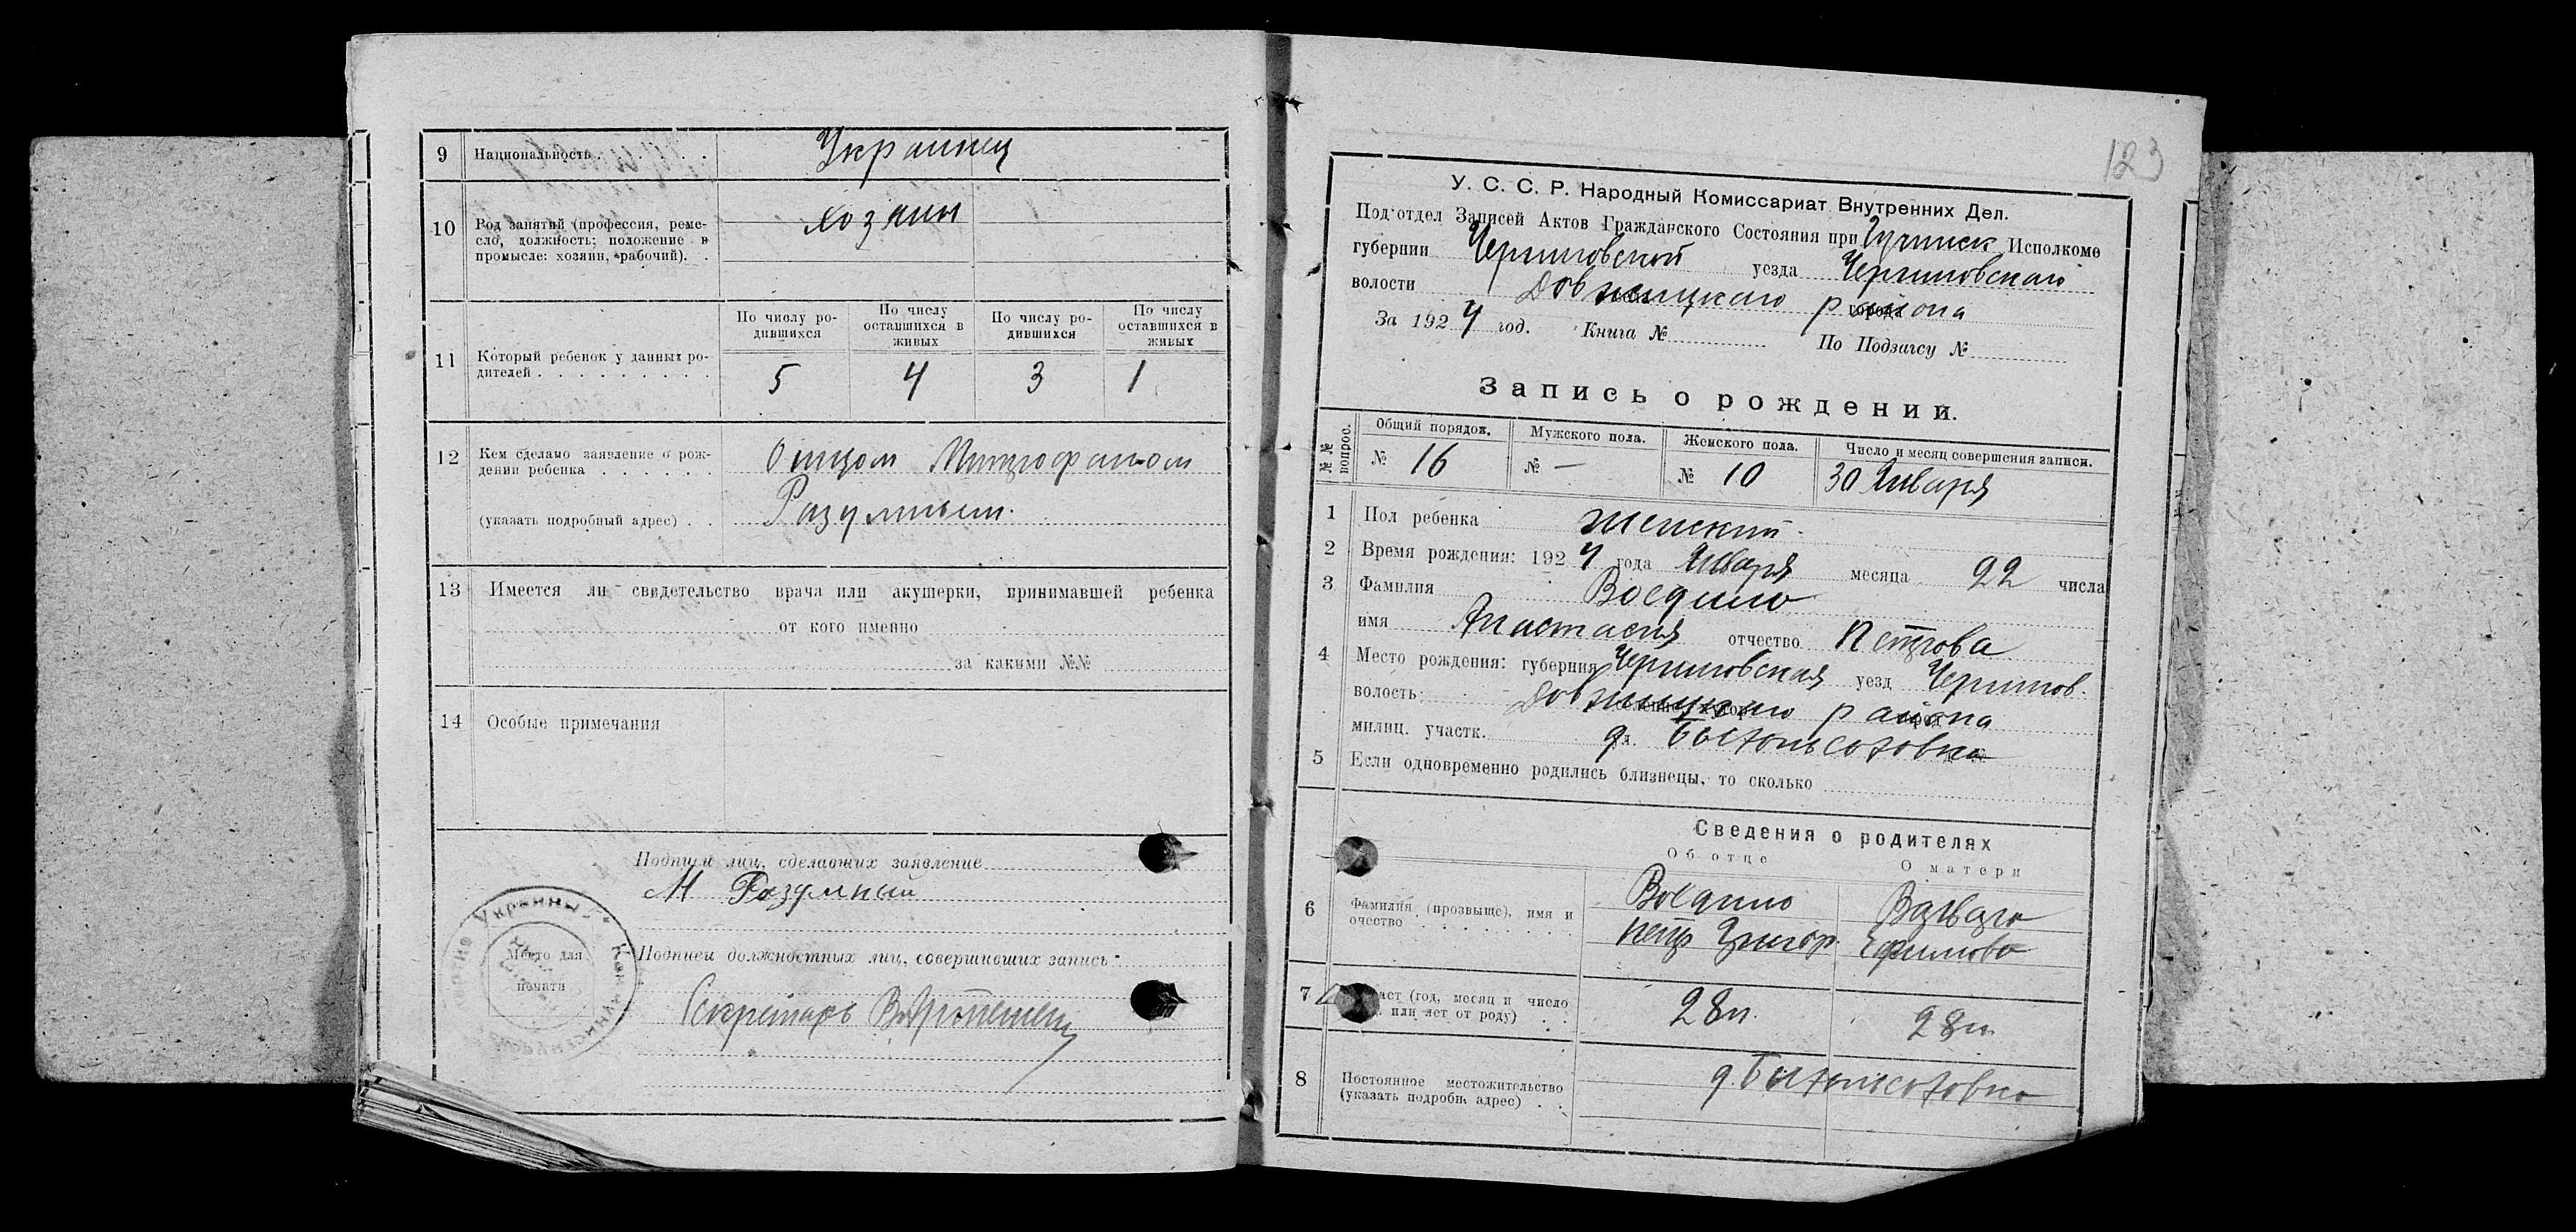 9 Национальность Украинец
10 Род занятий (профессия, реме-
сло, должность; положение в
промысле: хозяин, рабочий).
хозяин
По числу ро-
дившихся
По числу
оставшихся в
живых
По числу ро-
дившихся
По числу
оставшихся в
живых
11 Который ребенок у данных ро-
дителей
5 4 3 1
12 Кем сделано заявление о рож-
дении ребенка
Отцом Митрофаном
(указать подробный адрес)
Разумным.
13 Имеется ли свидетельство врача или акушерки, принимавшей ребенка
от кого именно
за какими №№
14 Особые примечания
Подписи лиц, сделавших заявление
М Разумный
Место для
печати
Подписи должностных лиц, совершивших запись
Секретарь
123
У. С. С. Р. Народный Комиссариат Внутренних Дел.
Под'отдел Записей Актов Гражданского Состояния при Исполкоме
губернии Черниговской уезда Черниговского
волости Довжицкого района
За 1924 год. Книга № По Подзагсу №
Запись о рождении.
№№ вопрос.
Общий порядок. Мужского пола. Женского пола. Число и месяц совершения записи.
№ 16 № — № 10 30 Января
1 Пол ребенка женский
2 Время рождения: 1924 года Января месяца 22 числа
3 Фамилия
имя Анастасия отчество Петрова
4 Место рождения: губерния Черниговская уезд Чернигов.
волость Довжицкого района
милиц. участк. д.
5 Если одновременно родились близнецы, то сколько
Сведения о родителях
Об отце О матери
6 Фамилия (прозвыще), имя и
очество
Варвара
Петр Григор. Ефимова
7 (год, месяц и число
или лет от роду)
28 л. 28 л.
8 Постоянное местожительство
(указать подробн. адрес)
д.